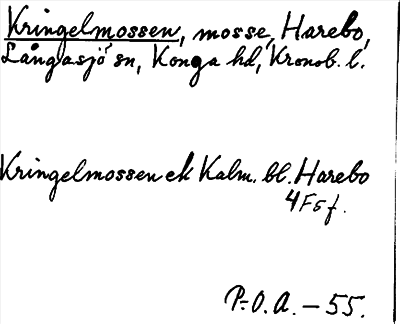 Kringelmossen, mosse, Harebo,
Långasjö sn, Konga hd, Kronob. l.
Kringelmossen ek Kalm. bl. Harebo
4 F 5 f.
P.-O. A. – 55.